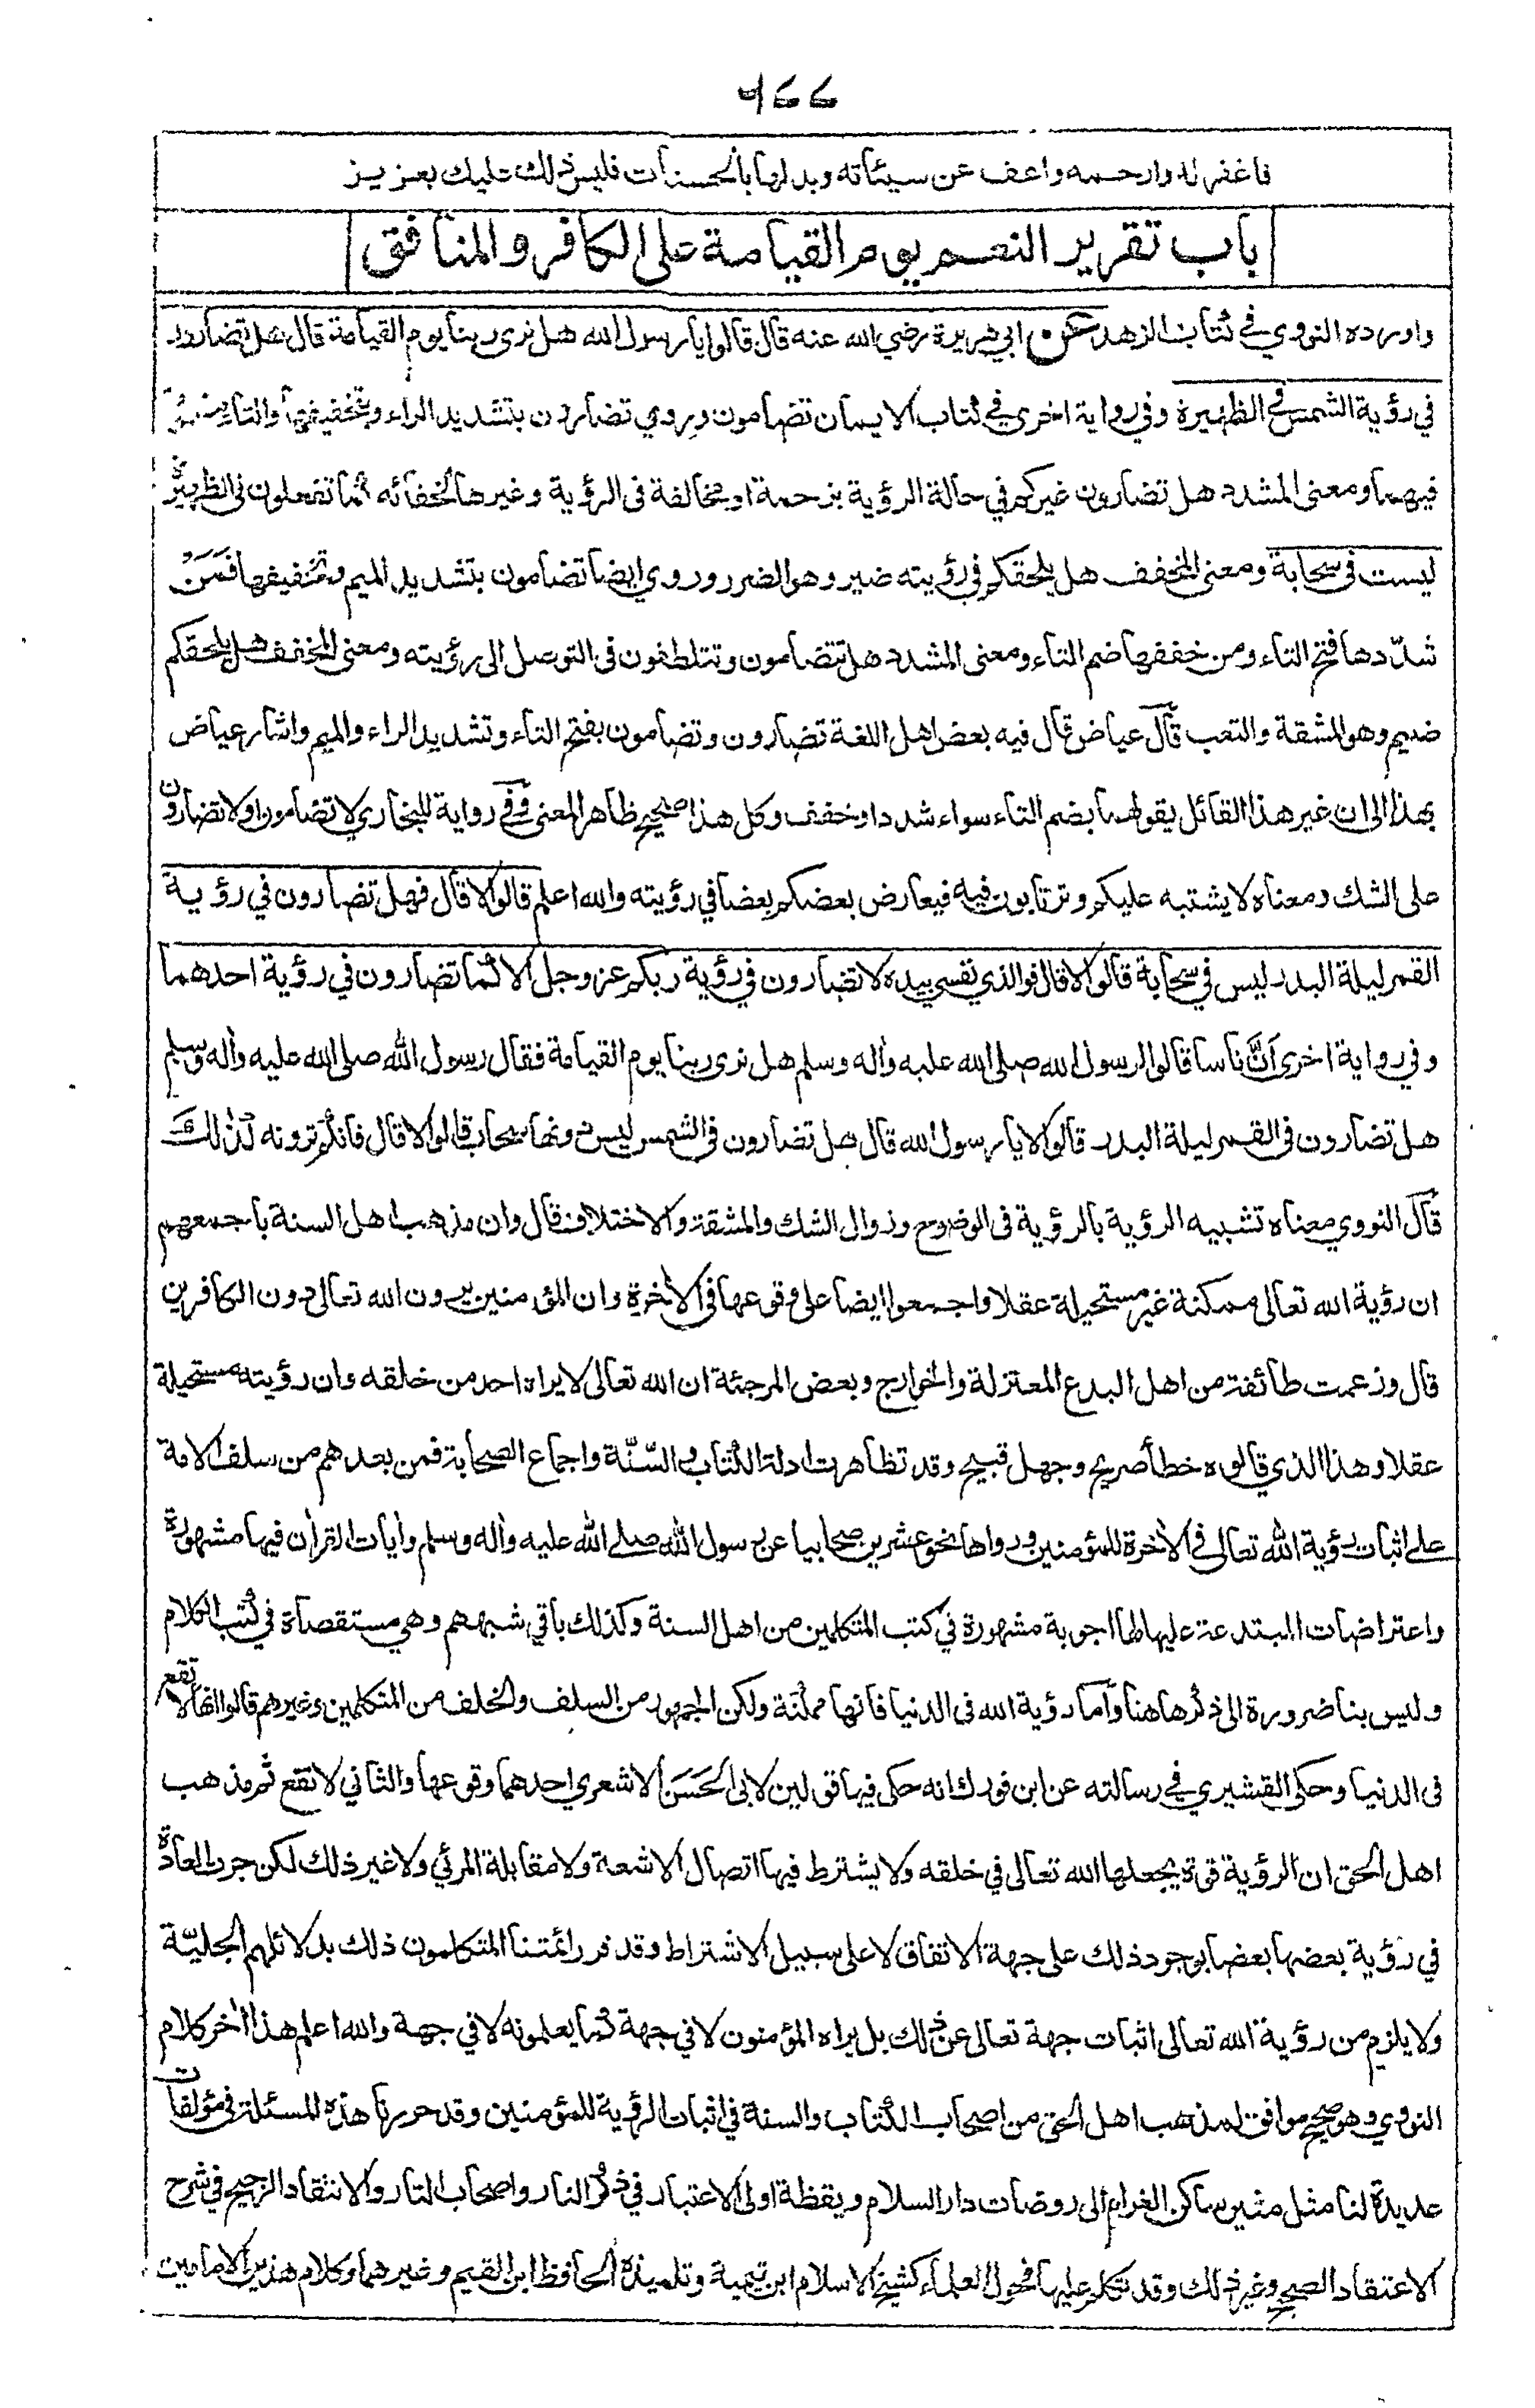 ٦٧٧
فاغفر له وارحمه واعف عن سيئاته وبدلها بالحسنات فليس ذلك عليك بعزيز
باب تقرير النعم يوم القيامة على الكافر والمنافق
واورده النووي في كتاب الزهد عن ابي هريرة رضي الله عنه قال قالوا يا رسول الله هل نرى ربنا يوم القيامة قال هل تضارون
في رؤية الشمس في الظهيرة وفي رواية اخرى في كتاب الايمان تضامون وروي تضارون بتشديد الراء وبتخفيفها والتاء مضمومة
فيهما ومعنى المشدد هل تضارون غيركم في حالة الرؤية بزحمة او مخالفة في الرؤية وغيرها لخفائه كما تفعلون في الظهيرة
ليست في سحابة ومعنى المخفف هل يلحقكم في رؤيته ضير وهو الضرر وروي ايضا تضامون بتشديد الميم وتخفيفها فمن
شدّدها فتح التاء ومن خففها ضم التاء ومعنى المشدد هل تتضامون وتتلطفون في التوصل الى رؤيته ومعنى المخفف هل يلحقكم
ضيم وهو المشقة والتعب قال عياض قال فيه بعض اهل اللغة تضارون وتضامون بفتح التاء وتشديد الراء والميم واشار عياض
بهذا الى ان غير هذا القائل يقولهما بضم التاء سواء شدد او خفف وكل هذا صحيح ظاهر المعنى وفي رواية للبخاري لا تضامون او لا تضارون
على الشك ومعناه لا يشتبه عليكم وترتابون فيه فيعارض بعضكم بعضا في رؤيته والله اعلم قالوا لا قال فهل تضارون في رؤية
القمر ليلة البدر ليس في سحابة قالوا لا قال فوالذي نفسي بيده لا تضارون في رؤية ربكم عز وجل الا كما تضارون في رؤية احدهما
وفي رواية اخرى أنّ ناسا قالوا لرسول الله صلى الله عليه وآله وسلم هل نرى ربنا يوم القيامة فقال رسول الله صلى الله عليه وآله وسلم
هل تضارون في القمر ليلة البدر قالوا لا يا رسول الله قال هل تضارون في الشمس ليس دونها سحاب قالوا لا قال فانكم ترونه كذلك
قال النووي معناه تشبيه الرؤية بالرؤية في الوضوح وزوال الشك والمشقة والاختلاف قال وان مذهب اهل السنة باجمعهم
ان رؤية الله تعالى ممكنة غير مستحيلة عقلا واجمعوا ايضا على وقوعها في الآخرة وان المؤمنين يرون الله تعالى دون الكافرين
قال وزعمت طائفة من اهل البدع المعتزلة والخوارج وبعض المرجئة ان الله تعالى لا يراه احد من خلقه وان رؤيته مستحيلة
عقلا وهذا الذي قالوه خطأ صريح وجهل قبيح وقد تظاهرت ادلة الكتاب والسّنّة واجماع الصحابة فمن بعدهم من سلف الامة
على اثبات رؤية الله تعالى في الآخرة للمؤمنين ورواها نحو عشرين صحابيا عن رسول الله صلى الله عليه وآله وسلم وآيات القرآن فيها مشهورة
واعتراضات المبتدعة عليها لها اجوبة مشهورة في كتب المتكلمين من اهل السنة وكذلك باقي شبههم وهي مستقصاة في كتب الكلام
وليس بنا ضرورة الى ذكرها هنا وأما رؤية الله في الدنيا فانها ممكنة ولكن الجمهور من السلف والخلف من المتكلمين وغيرهم قالوا انها لا تقع
في الدنيا وحكى القشيري في رسالته عن ابن فورك انه حكى فيها قولين لابي الحَسَن الاشعري احدهما وقوعها والثاني لا تقع ثم مذهب
اهل الحق ان الرؤية قوة يجعلها الله تعالى في خلقه ولا يشترط فيها اتصال الاشعة ولا مقابلة المرئي ولا غير ذلك لكن جرت العادة
في رؤية بعضها بعضا بوجود ذلك على جهة الاتفاق لا على سبيل الاشتراط وقد قرر ائمتنا المتكلمون ذلك بدلائلهم الجليّة
ولا يلزم من رؤية الله تعالى اثبات جهة تعالى عن ذلك بل يراه المؤمنون لا في جهة كما يعلمونه لا في جهة والله اعلم هذا آخر كلام
النووي وهو صحيح موافق لمذهب اهل الحق من اصحاب الكتاب والسنة في اثبات الرؤية للمؤمنين وقد حررنا هذه المسئلة في مؤلفات
عديدة لنا مثل مثير ساكن الغرام الى روضات دار السلام ويقظة اولى الاعتبار في ذكر النار واصحاب النار والانتقاد الرجيح في شرح
الاعتقاد الصحيح وغير ذلك وقد تكلم عليها فحول العلماء كشيخ الاسلام ابن تيمية وتلميذه الحافظ ابن القيم وغيرهما وكلام هذين الامامين